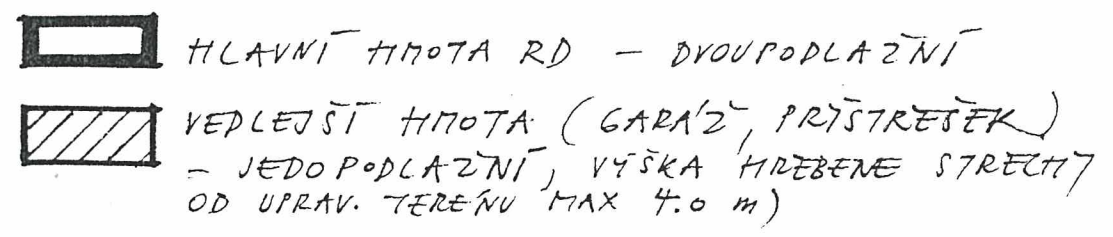 HLAVNÍ HMOTA RD – DVOUPODLAŽNÍ
VEDLEJŠÍ HMOTA (GARÁŽ, PŘÍSTŘEŠEK)
– JEDOPODLAŽNÍ, VÝŠKA HŘEBENE STŘECHY
OD UPRAV. TERÉNU MAX 4.0 m)